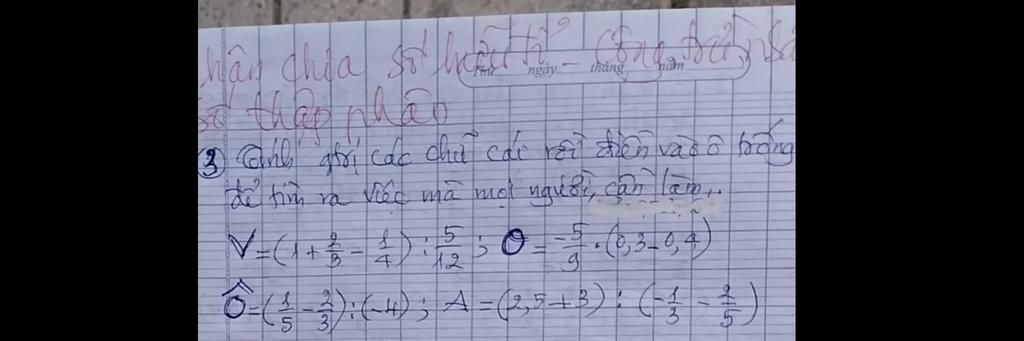 nhân chia số hữu tỉ - Cộng trừ nhâ
số thập phân
Thứ ngày tháng năm
③ Tính giá trị các chữ cái rồi điền vào ô trống
để tìm ra việc mà mọi người cần làm..
V = (1 + 2/3 - 1/4) : 5/12 ; O = -5/9 . (0,3 - 0,4)
Ô = (1/5 - 2/3) : (-4) ; A = (2,5 + 3) : (-1/3 - 2/5)